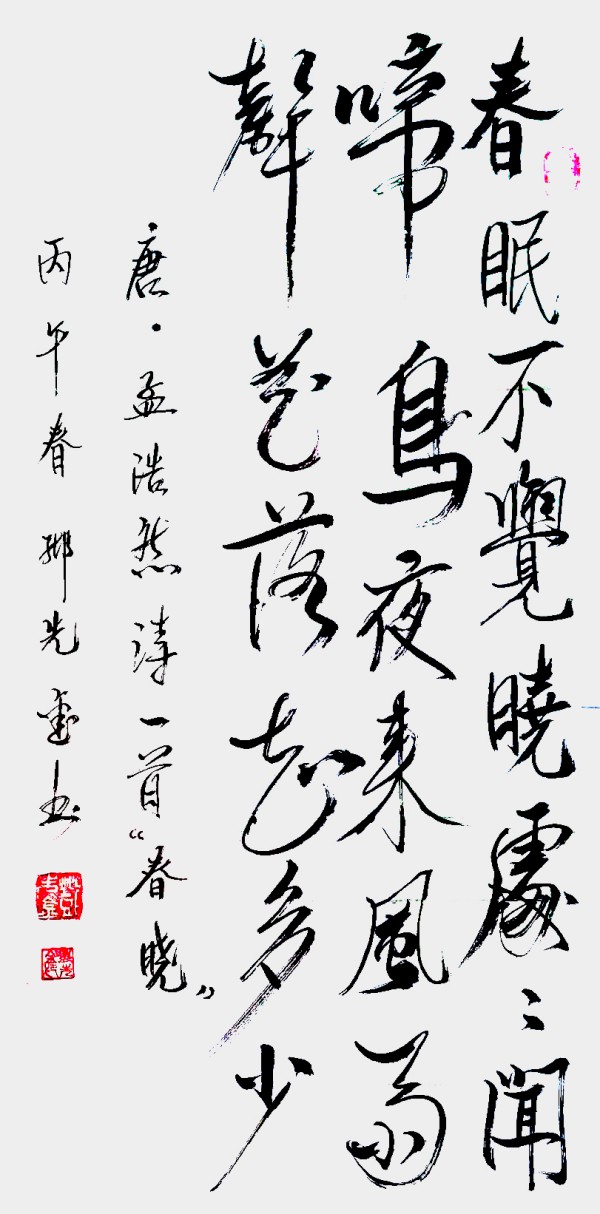 春眠不覺曉處〻聞
啼鳥夜来風雨
聲花落知多少
唐·孟浩然诗一首“春晓”
丙午春 先 书